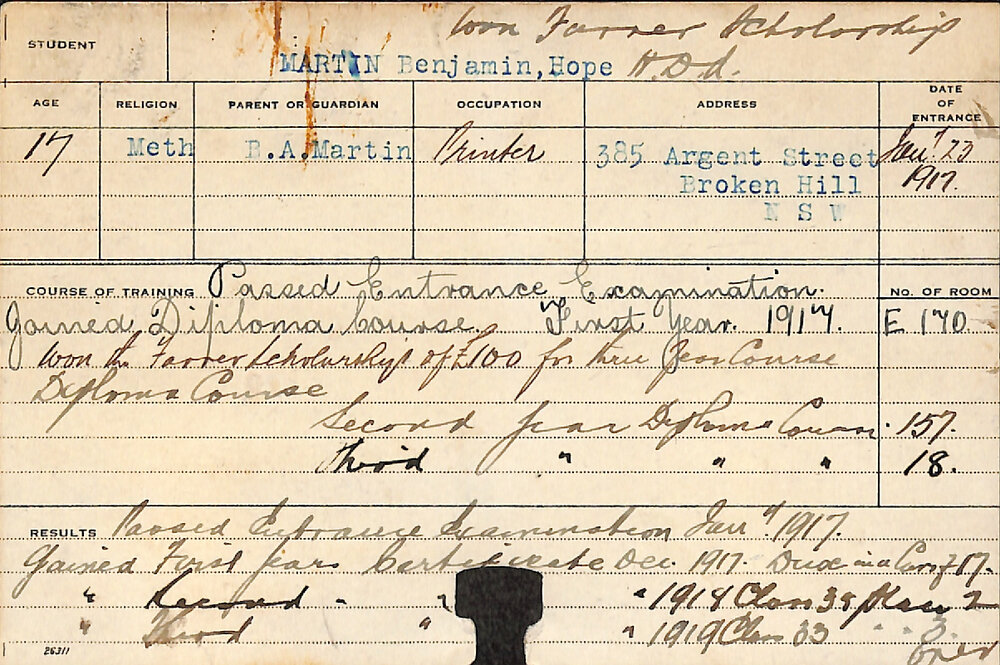 Won Farrer Scholarship
STUDENT
MARTIN Benjamin, Hope H.D.d.
AGE RELIGION PARENT OR GUARDIAN OCCUPATION ADDRESS DATE OF ENTRANCE
17 Meth B.A. Martin Printer 385 Argent Street Jany 23
Broken Hill 1917.
N S W
COURSE OF TRAINING Passed Entrance Examination. No. OF ROOM
Joined Diploma Course. "First Year. 1917. E 170
Won the Farrer Scholarship of £100 for three Year Course
Diploma Course
Second Year Diploma Course. 157.
Third " " " 18.
RESULTS Passed Entrance Examination Jany 1917.
Gained First Years Certificate Dec. 1917. Dux in a Class of 17.
" Second " " " 1918 Class 38 Place 2
" Third " " 1919 Class 33 " " 3.
26311